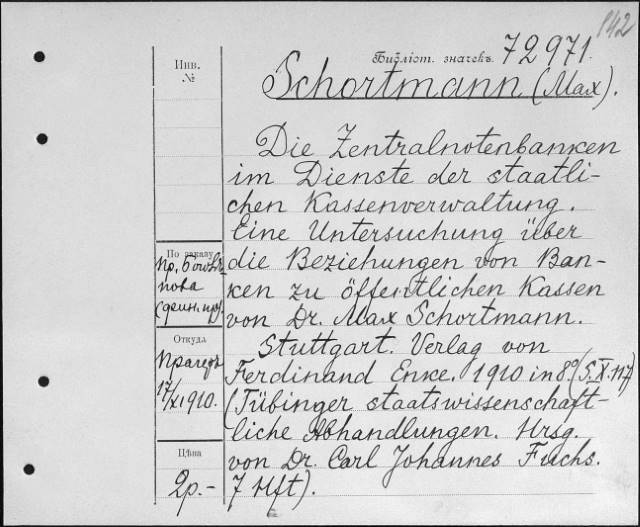 142
Библіот. значекъ 72971.
Schortmann (Max).
Инв.
№
Die Zentralnotenbanken
im Dienste der staatli-
chen Kassenverwaltung.
Eine Untersuchung über
die Beziehungen von Ban-
ken zu öffentlichen Kassen
von Dr. Max Schortmann.
Stuttgart. Verlag von
Ferdinand Enke. 1910 in 8º (S. X. 117)
(Tübinger staatswissenschaft-
liche Abhandlungen. Hrsg.
von Dr. Carl Johannes Fuchs.
7 Hft).
По заказу
пр.
нова
(фин. пр).
Откуда
Прагеръ
17/XI 1910.
Цѣна
2р.-